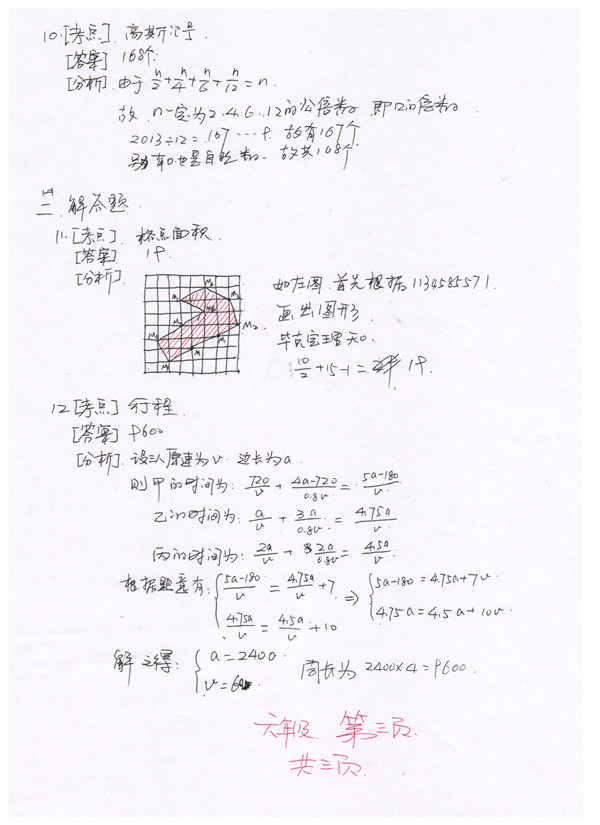 10.[考点] 高斯记号.
[答案] 168个.
[分析] 由于 n/2+n/4+n/6+n/12=n.
故 n一定为2.4.6.12的公倍数 即12的倍数.
2013÷12=167…9. 故有167个
另有0也是自然数. 故共168个
二 解答题.
11.[考点] 格点面积.
[答案] 19.
[分析]
如左图 首先根据1134585571.
画出图形
毕克定理知:
10/2+15-1=19.
12.[考点] 行程.
[答案] 9600
[分析] 设三人原速为v. 边长为a.
则甲的时间为: 720/v + (4a-720)/0.8v = (5a-180)/v
乙的时间为: a/v + 3a/0.8v = 4.75a/v
丙的时间为: 2a/v + 2a/0.8v = 4.5a/v.
根据题意有: { (5a-180)/v = 4.75a/v +7 ⇒ { 5a-180=4.75a+7v.
4.75a/v = 4.5a/v +10 4.75a=4.5a+10v.
解之得: { a=2400
v=60. 周长为 2400×4=9600.
六年级. 第三页.
共三页.